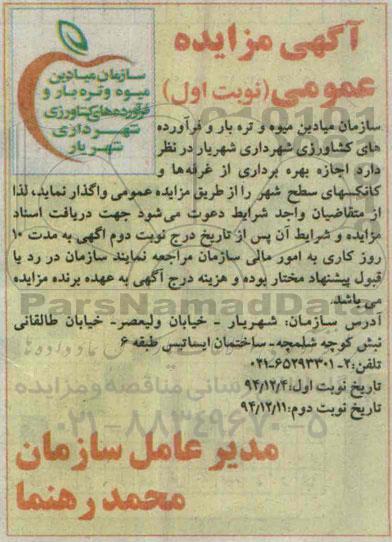 آگهی مزایده
عمومی (نوبت اول)
سازمان میادین
میوه و تره بار و
فرآورده‌های کشاورزی
شهرداری
شهریار
سازمان میادین میوه و تره بار و فرآورده
های کشاورزی شهرداری شهریار در نظر
دارد اجازه بهره برداری از غرفه‌ها و
کانکسهای سطح شهر را از طریق مزایده عمومی واگذار نماید، لذا
از متقاضیان واجد شرایط دعوت می‌شود جهت دریافت اسناد
مزایده و شرایط آن پس از تاریخ درج نوبت دوم آگهی به مدت ۱۰
روز کاری به امور مالی سازمان مراجعه نمایند سازمان در رد یا
قبول پیشنهاد مختار بوده و هزینه درج آگهی به عهده برنده مزایده
می باشد.
آدرس سازمان: شهریار - خیابان ولیعصر- خیابان طالقانی
نبش کوچه شلمچه- ساختمان ایساتیس طبقه ۶
تلفن: ۲-۶۵۲۹۳۳۰۱-۰۲۱
تاریخ نوبت اول: ۹۴/۱۲/۴
تاریخ نوبت دوم: ۹۴/۱۲/۱۱
مدیر عامل سازمان
محمد رهنما
ParsNamadData
۰۲۱-۸۸۳۴۹۶۷۰-۵